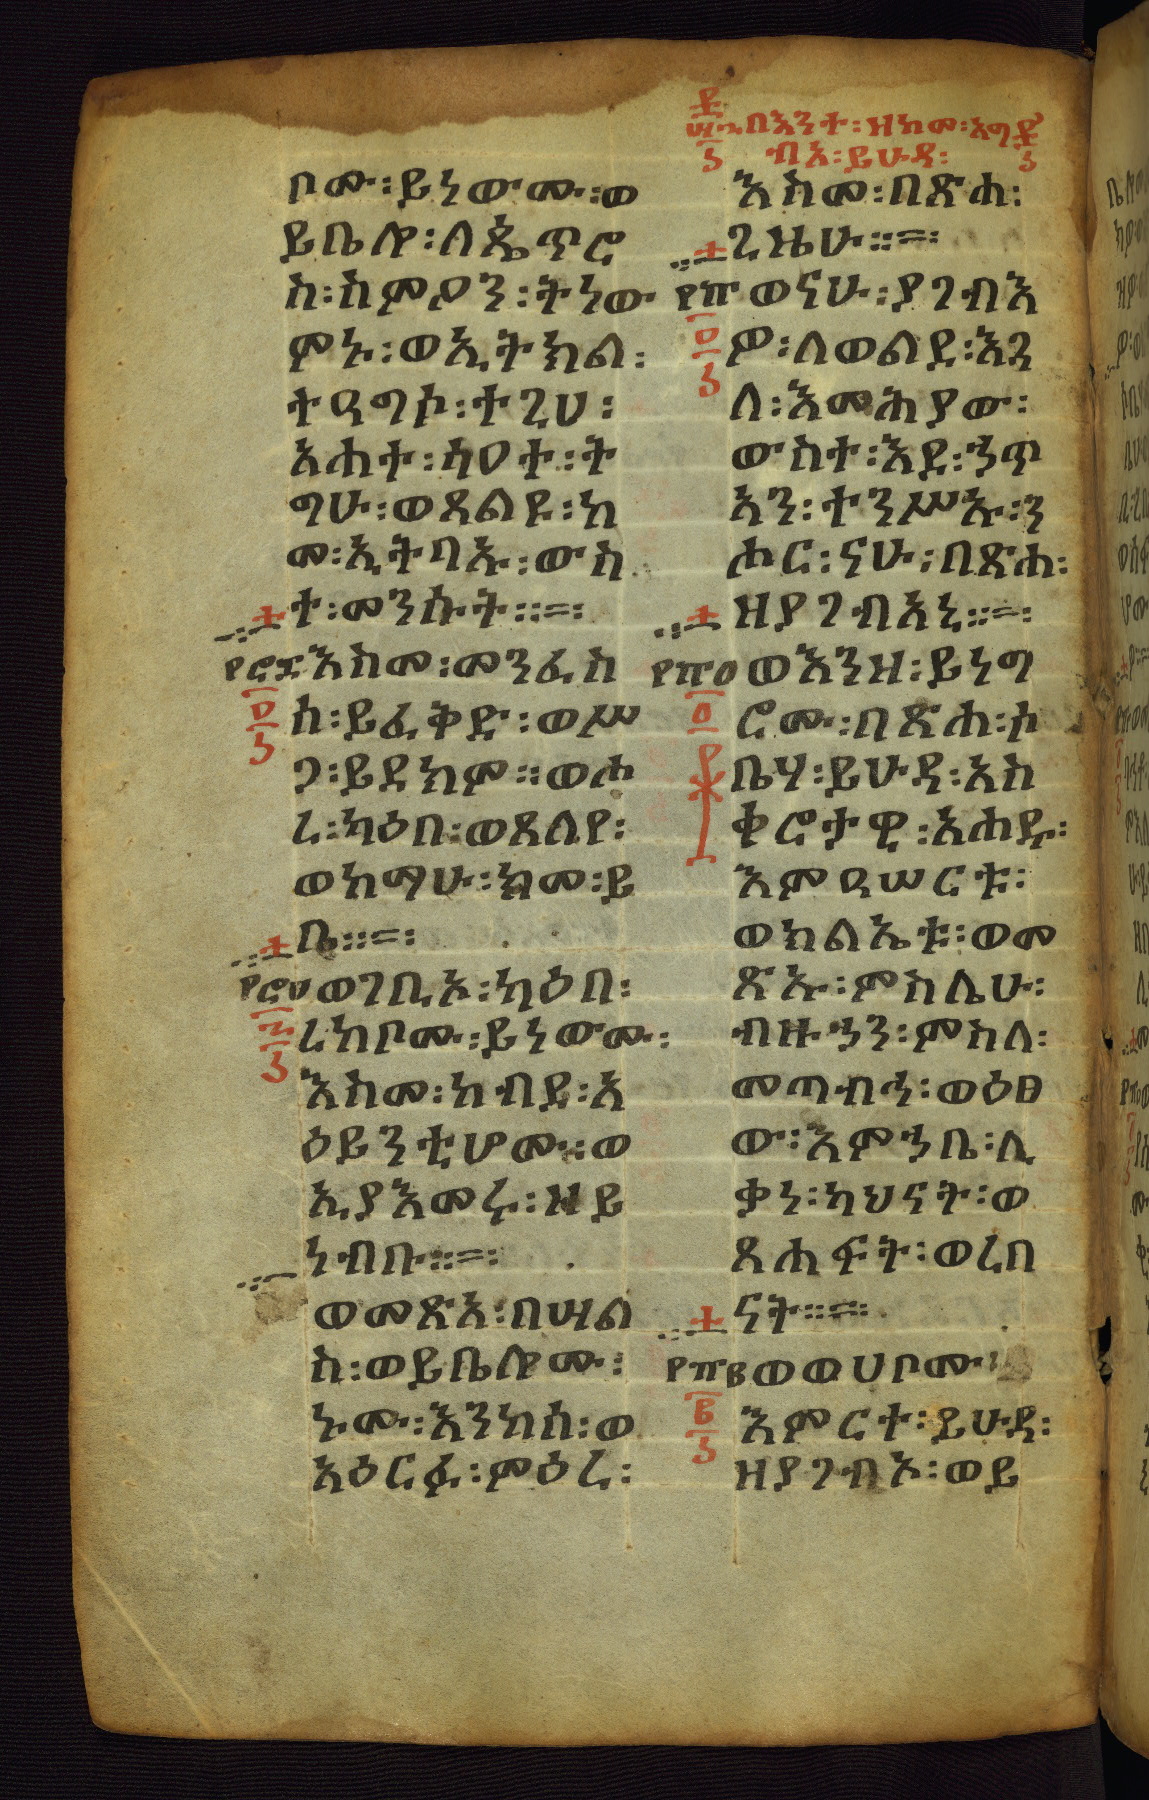 በእንተ፡ዘከመ፡አግ
ብአ፡ይሁዳ፡
ቦሙ፡ይነውሙ፡ወ
ይቤሎ፡ለጴጥሮ
ስ፡ስምዖን፡ትነው
ምኑ፡ወኢትክል፡
ተዓግሶ፡ተጊሀ፡
አሐተ፡ሳዐተ፡ት
ግሁ፡ወጸልዩ፡ከ
መ፡ኢትባኡ፡ውስ
ተ፡መንሱት።፡=፡
እስመ፡መንፈስ
ሰ፡ይፈቅድ፡ወሥ
ጋ፡ይደክም።ወሖ
ረ፡ካዕበ፡ወጸለየ፡
ወከማሁ፡ክመ፡ይ
ቤ።፡=፡
ወገቢኦ፡ካዕበ፡
ረከቦሙ፡ይነውሙ፡
እስመ፡ከብደ፡አ
ዕይንቲሆሙ።ወ
ኢያእመሩ፡ዘይ
ነብቡ።፡=፡
ወመጽአ፡በሣል
ስ፡ወይቤሎሙ፡
ኑሙ፡እንከሰ፡ወ
አዕርፉ፡ምዕረ፡
እስመ፡በጽሐ፡
ጊዜሁ።፡=፡
ወናሁ፡ያገብእ
ዎ፡ለወልደ፡እጓ
ለ፡እመሕያው፡
ውስተ፡እደ፡ኃጥ
አን፡ተንሥኡ፡ን
ሖር፡ናሁ፡በጽሐ፡
ዘያገብአኒ።፡=፡
ወእንዘ፡ይነግ
ሮሙ፡በጽሐ፡ኀ
ቤሃ፡ይሁዳ፡አስ
ቆሮታዊ፡አሐዱ፡
እምዓሠርቱ፡
ወክልኤቱ፡ወመ
ጽኡ፡ምስሌሁ፡
ብዙኃን፡ምስለ፡
መጣብሕ፡ወዕፀ
ው፡እምኃቤ፡ሊ
ቃነ፡ካህናት፡ወ
ጸሐፍት፡ወረበ
ናት።፡=፡
ወወሀቦሙ፡
እምርተ፡ይሁዳ፡
ዘያገብኦ፡ወይ